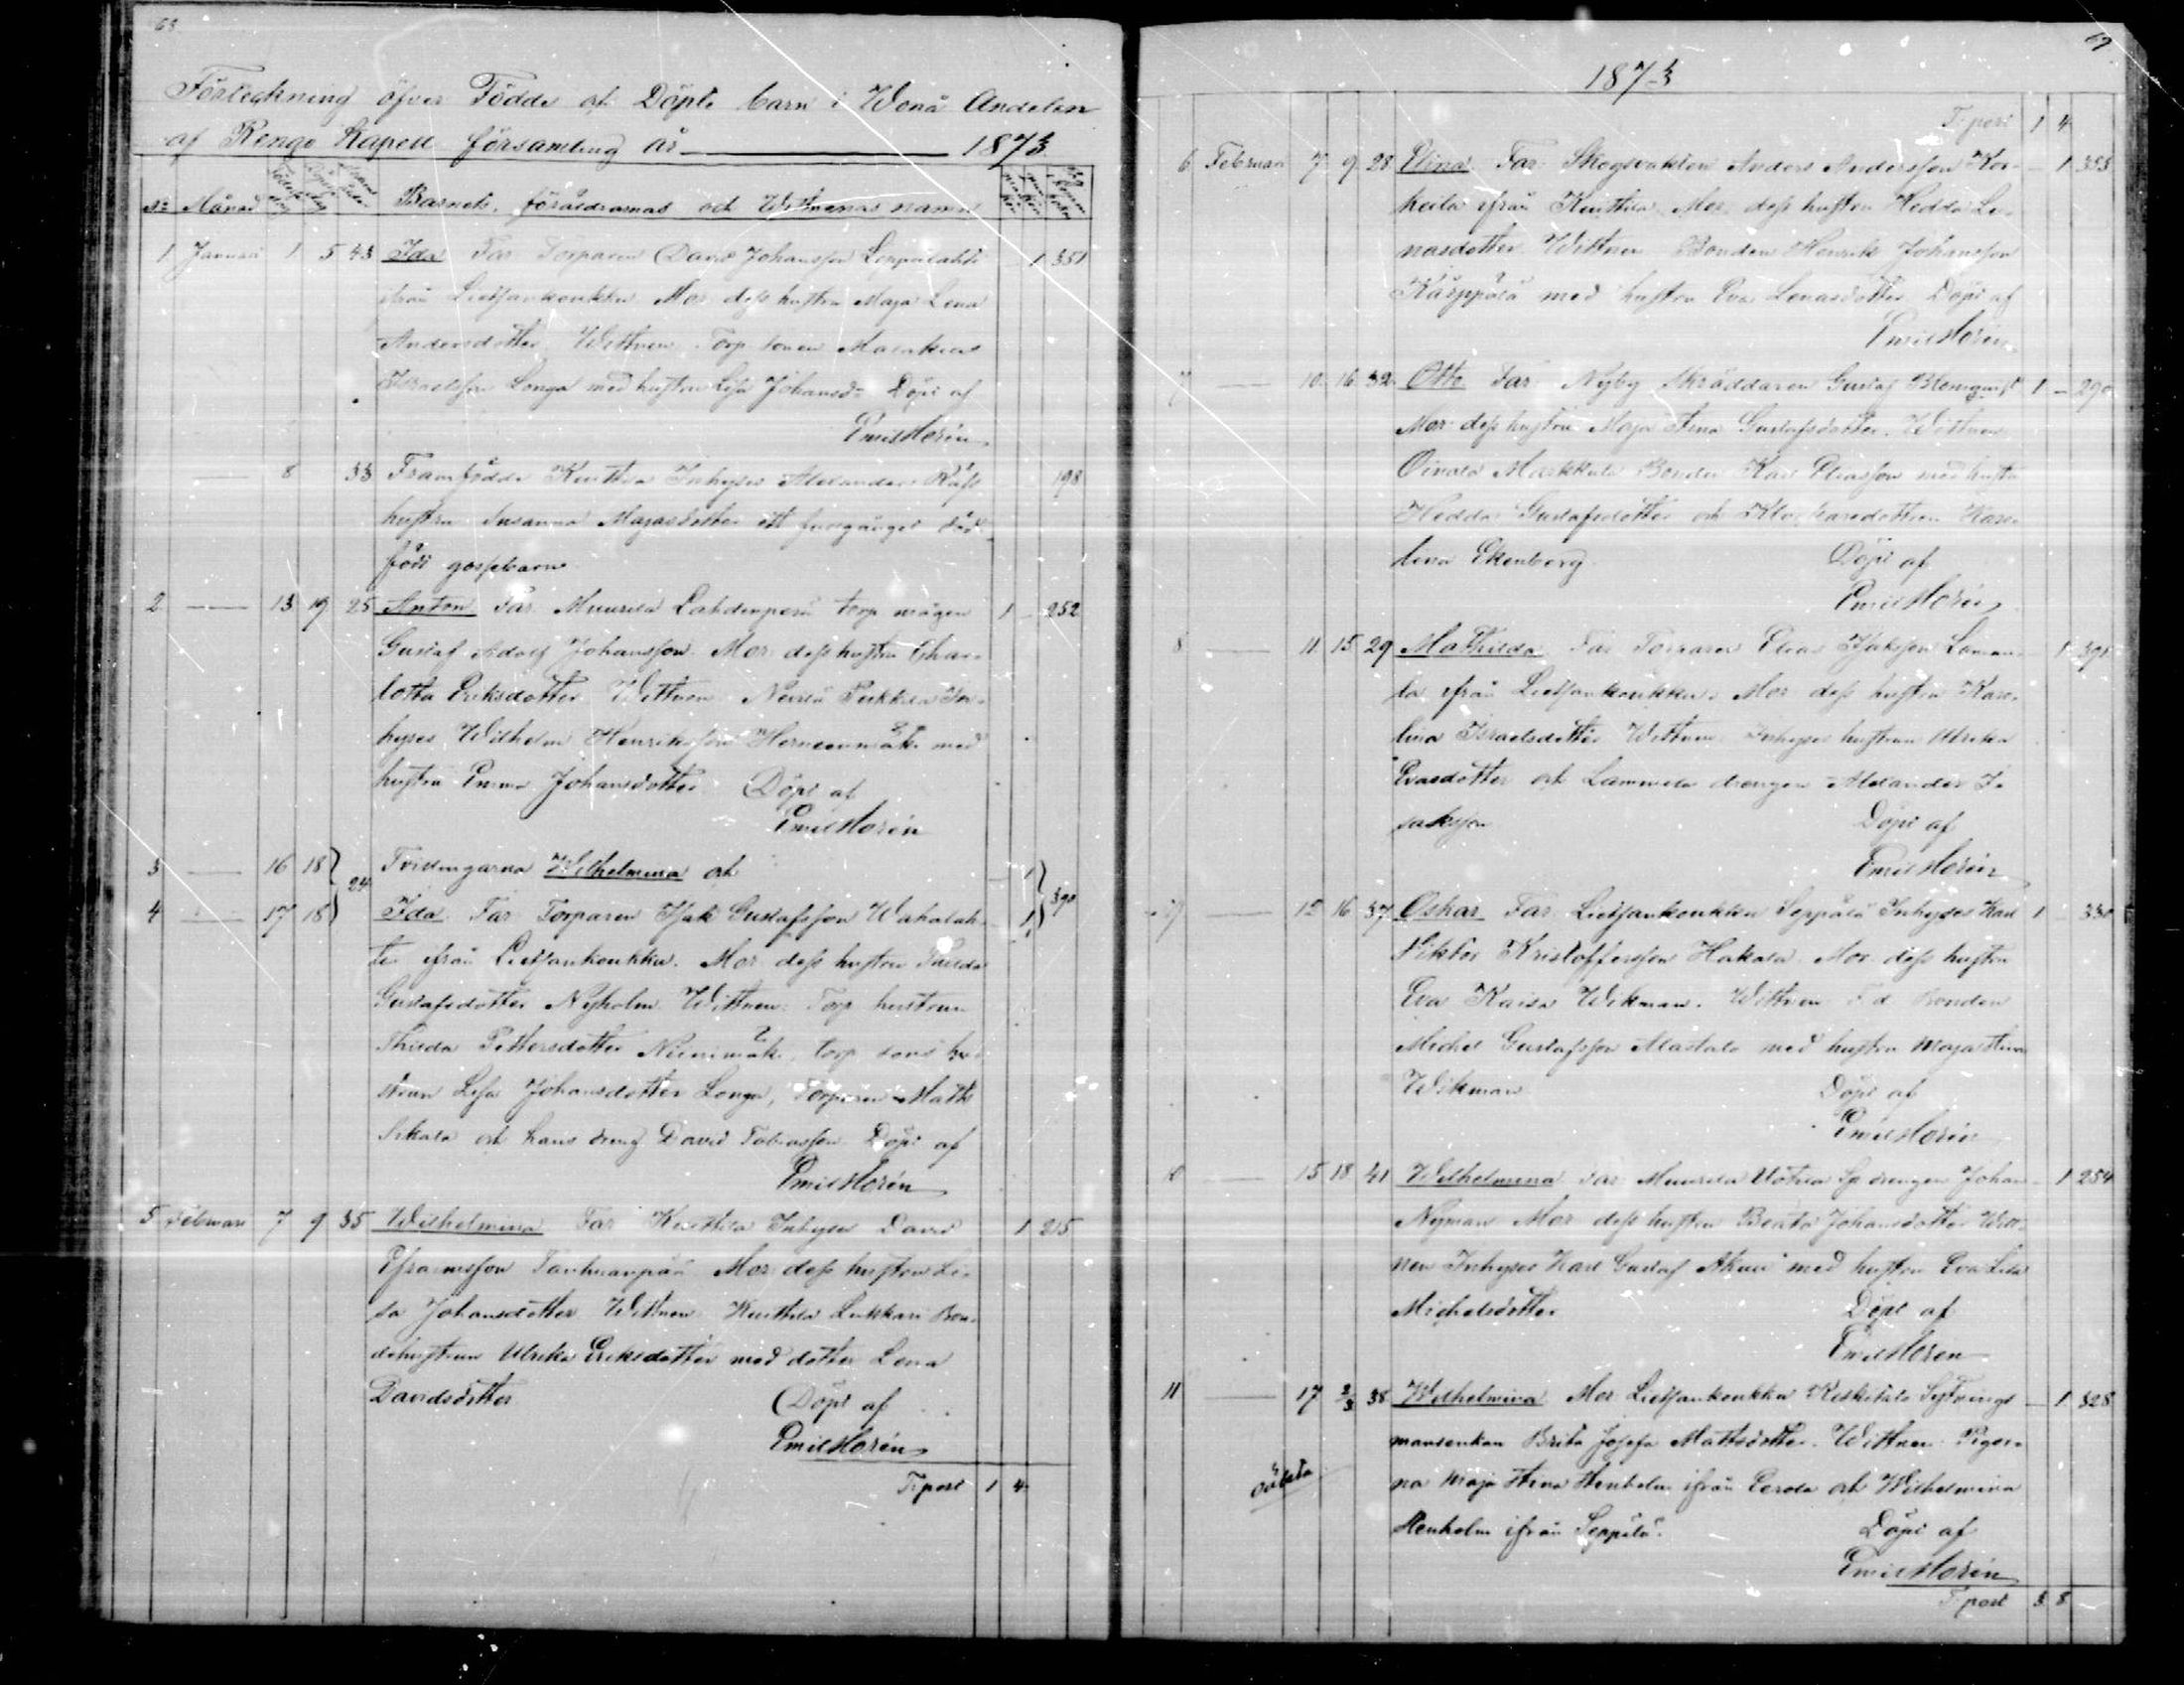 68
Förteckning öfver Födde och Döpte barn i Wenå Andelen
af Kengo Kapell församling år 1873
No Månad Barnets, föräldrarnas och Wittnenas namn
1 Januari 1 5 43 Ida Far Torparen David Johansson Leppälahti 1 351
ifrån Lietsankoukku Mor dess hustru Maja Lena
Andersdotter. Wittnen Torp sonen Malakias
Israelsson Longa med hustru Lisa Johansd: Döpt af
Emil Horén
8 33 Framfödde Kuittila Inhyses Alexander Räfs 198
hustru Susanna Majasdotter ett död
född gossebarn
2 13 19 25 Anton Far Muurila Lahdenperä torp mågen 1 252
Gustaf Adolf Johansson. Mor dess hustru Char-
lotta Eriksdotter Wittnen Peikkila In-
hyses Wilhelm Henriksson Herneenmäki med
hustru Emma Johansdotter Döpt af
Emil Horén
3 16 18 Tvillingarna Wilhelmina och 1
4 17 18 24 Ida Far Torparen Isak Gustafsson Wahalah- 1 390
ti ifrån Lietsankoukku. Mor dess hustru
Gustafsdotter Nyholm Wittnen Torp hustrun
Thilda Pettersdotter Nienimäki, torp sons hu-
strun Lisa Johansdotter Longa, Torparen Matts
och hans dräng David Tobiasson Döpt af
Emil Horén
5 Februari 7 9 35 Wilhelmina Far Kuittila Inhyses David 1 215
Efraimsson Tanhuanpää Mor dess hustru Li-
sa Johansdotter Wittnen Kuittila Lukkari Bon-
dehustrun Ulrika Eriksdotter med dotter Lena
Davidsdotter Döpt af
Emil Horén
Tr.post 1 4
69
1873
Tr.post 1 4
6 Februari 7 9 28 Elina Far Skogsvaktaren Anders Andersson Kor- 1 353
hiila ifrån Kuittila Mor dess hustru Hedda Le-
nasdotter Wittnen Bonden Henrik Johansson
Kärppälä med hustru Eva Lenasdotter Döpt af
Emil Horén
7 10 16 32 Otto Far Nyby Skräddaren Gustaf Blomqvist 1 290
Mor dess hustru Maja Stina Gustafsdotter. Wittnen
Oinala Markkula Bonden Karl Eliasson med hustru
Hedda Gustafsdotter och Klockaredottren Karo-
lina Ekenberg Döpt af
Emil Horén
8 11 15 29 Mathilda Far Torparen Elias Isaksson 1 391
la ifrån Lietsankoukku. Mor dess hustru Karo-
lina Israelsdotter Wittnen Inhyses hustrun Ulrika
Evasdotter och drengen Alexander I-
saksson Döpt af
Emil Horén
9 12 16 37 Oskar Far Lietsankoukku Seppälä Inhyses Karl 1 330
Viktor Kristoffersson Hakala Mor dess hustru
Eva Kaisa Wikman. Wittnen F d Bonden
Michel Gustafsson Alastalo med hustru Maja Stina
Wikman Döpt af
Emil Horén
10 15 18 41 Wilhelmina Far Muurila Uotila Sp drengen Johan 1 254
Nyman Mor dess hustru Beata Johansdotter Witt-
nen Inhyses Karl Gustaf med hustru Eva Lisa
Michelsdotter Döpt af
Emil Horén
11 17 2/3 38 Wilhelmina Mor Lietsankoukku Keskitalo Sytnings 1 328
mansenkan Brita Josefa Mattsdotter. Wittnen Pigor-
na Maja Stina Stenholm ifrån Eerola och Wilhelmina
oäkta
Stenholm ifrån Seppälä. Döpt af
Emil Horén
Tr.post 3 8